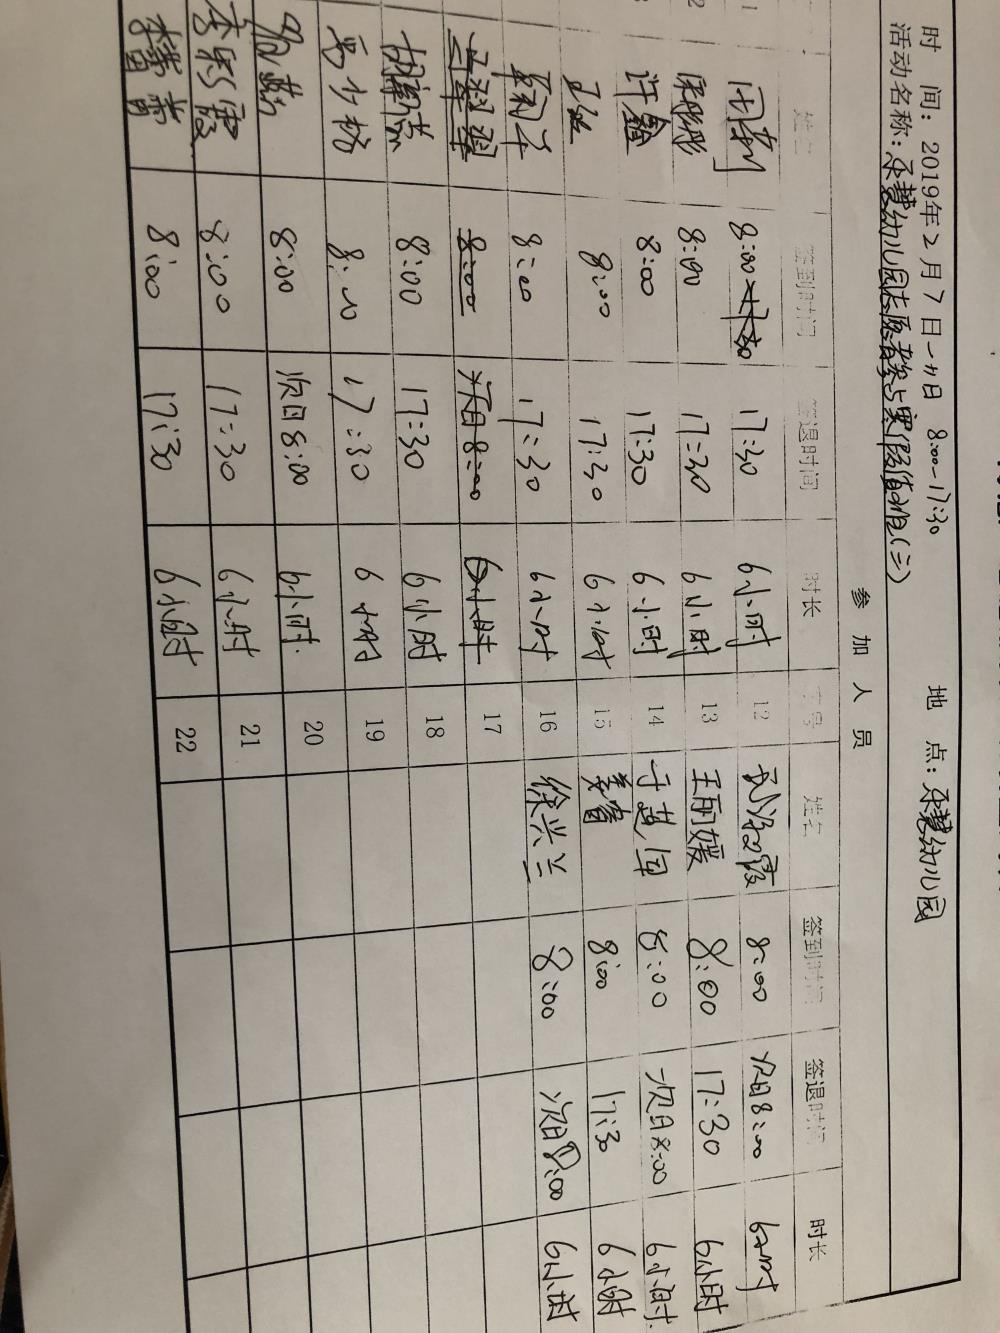 时 间：2019年2月7日-11日 8:00-17:30 地 点：禾慧幼儿园
活动名称：禾慧幼儿园志愿者参与寒假值班(二)
参 加 人 员
姓名 签到时间 签退时间 时长 序号 姓名 签到时间 签退时间 时长
1 8:00 17:30 17:30 6小时 12 8:00 次日8:00 6小时
2 8:00 17:30 6小时 13 王丽媛 8:00 17:30 6小时
许鑫 8:00 17:30 6小时 14 8:00 次日8:00 6小时
8:00 17:30 6小时 15 姜睿 8:00 17:30 6小时
8:00 17:30 6小时 16 徐兴兰 8:00 次日8:00 6小时
8:00 次日8:00 6小时 17
8:00 17:30 6小时 18
8:00 17:30 6小时 19
8:00 次日8:00 6小时 20
李彩霞 8:00 17:30 6小时 21
8:00 17:30 6小时 22